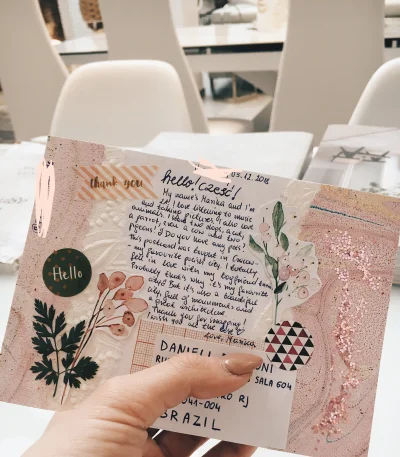 thank you
05.12.2018
hello! Cześć!
My name's Monika and I'm
I love listening to music
and taking pictures. I also love
animals. I have two dogs, a cat,
a parrot, even a cow and two
pigeons! Do you have any pets?
This postcard was bought in Cracow
- my favourite polish city. I totally
fell in love with my boyfriend there.
Probably that's why it's my favorite
city! But it's also a beautiful
city, full of monuments and
a great architecture.
Thank you for swapping!
I wish you all the best
Love, Monika
Hello
DANIELI
SALA 604
RJ
-004
BRAZIL